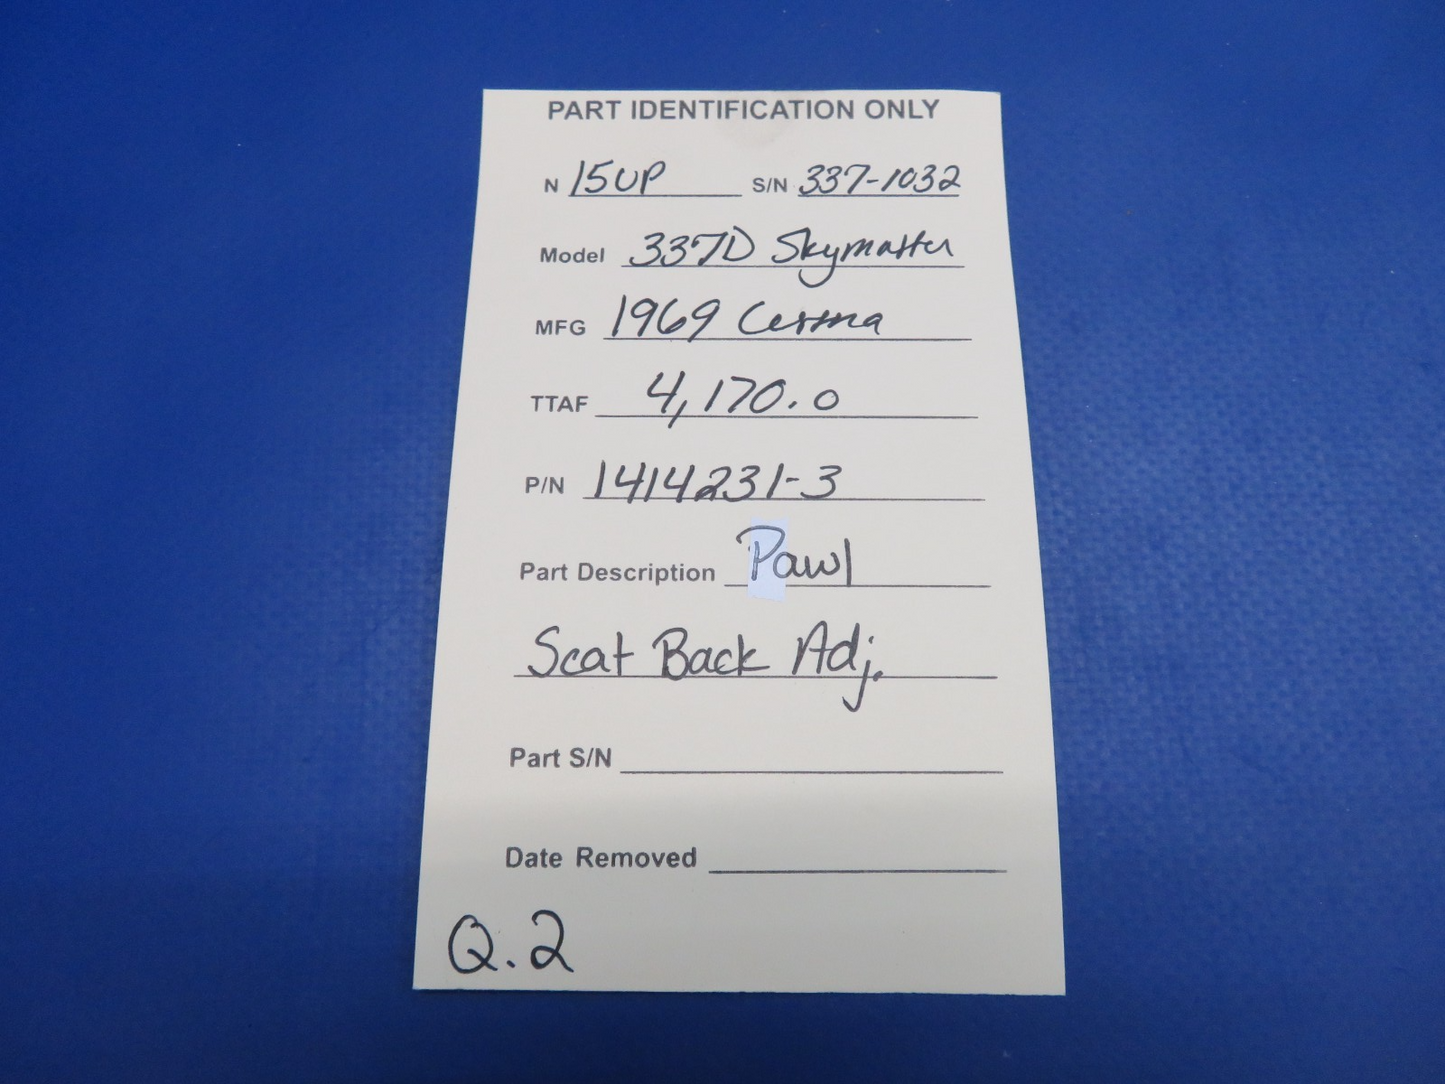 PART IDENTIFICATION ONLY
N 15UP S/N 337-1032
Model 337D Skymaster
MFG 1969 Cessna
TTAF 4,170.0
P/N 1414231-3
Part Description Pawl
Seat Back Adj.
Part S/N
Date Removed
Q.2